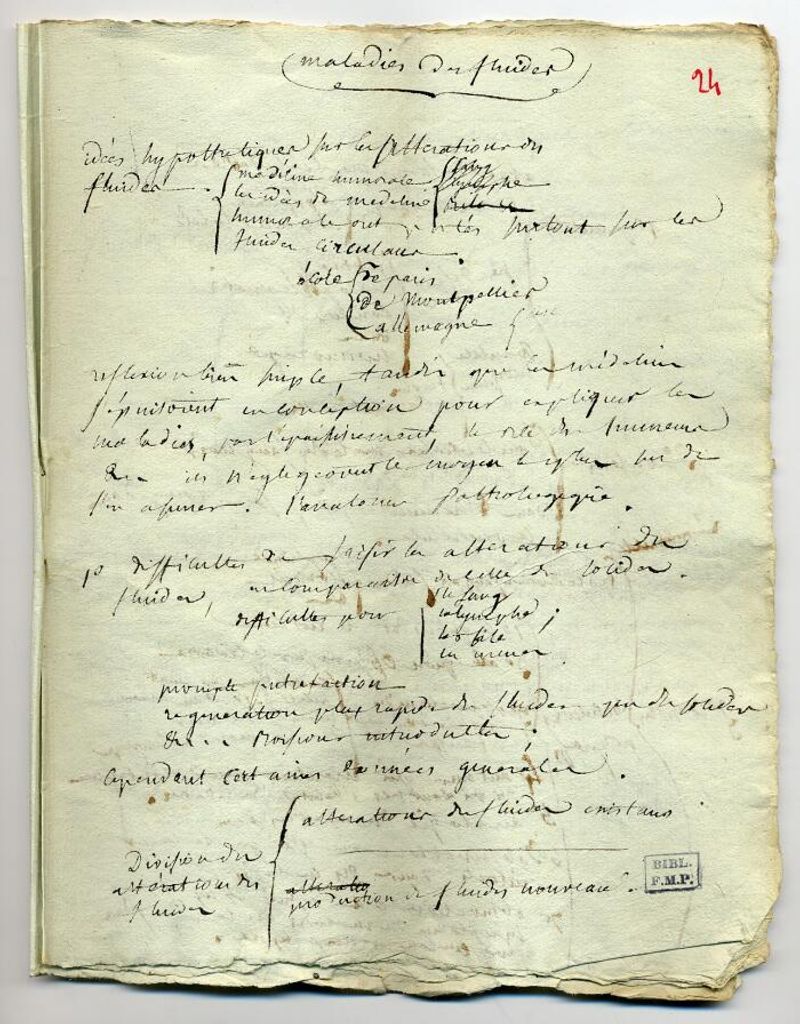 maladies des fluides
24
idées hypothetiques sur les alterations des
fluides
medecine humorale
les idées de medecine
humorale ont portés surtout sur les
fluides circulans
lymphe
école de paris
de Montpellier
allemagne
reflexion bien simple, tandis que les médecins
s'épuisoient en conception pour expliquer les
maladies, par l'épaississement, le des humeurs
&.. ils négligeoient le moyen le plus sur de
s'en assurer. l'anatomie pathologique.
1º difficultes de saisir les alterations des
fluides, en comparaison de celle des solides.
difficultes pour
le sang
la lymphe ;
la bile
les urines
prompte putrefaction
regeneration plus rapide des fluides que des solides
&... poisons introduites.
Cependant certaines données generales.
Division des
altérations des
fluides
alterations des fluides existans
alteratio
production de fluides nouveaux.
BIBL.
F.M.P.